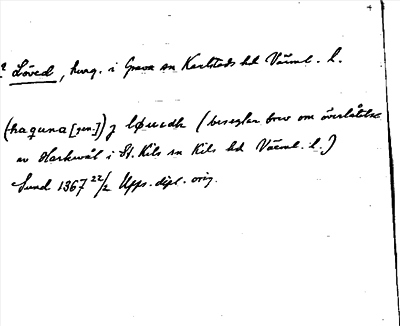 ? Löved, hmg. i Grava sn Karlstads hd Värml. l.
(haquna [gen.]) j løuædh (beseglar brev om överlåtelse
av Harkvål i St. Kils sn Kils hd Värml. l.)
Lund 1367 22/2 Upps. dipl. orig.